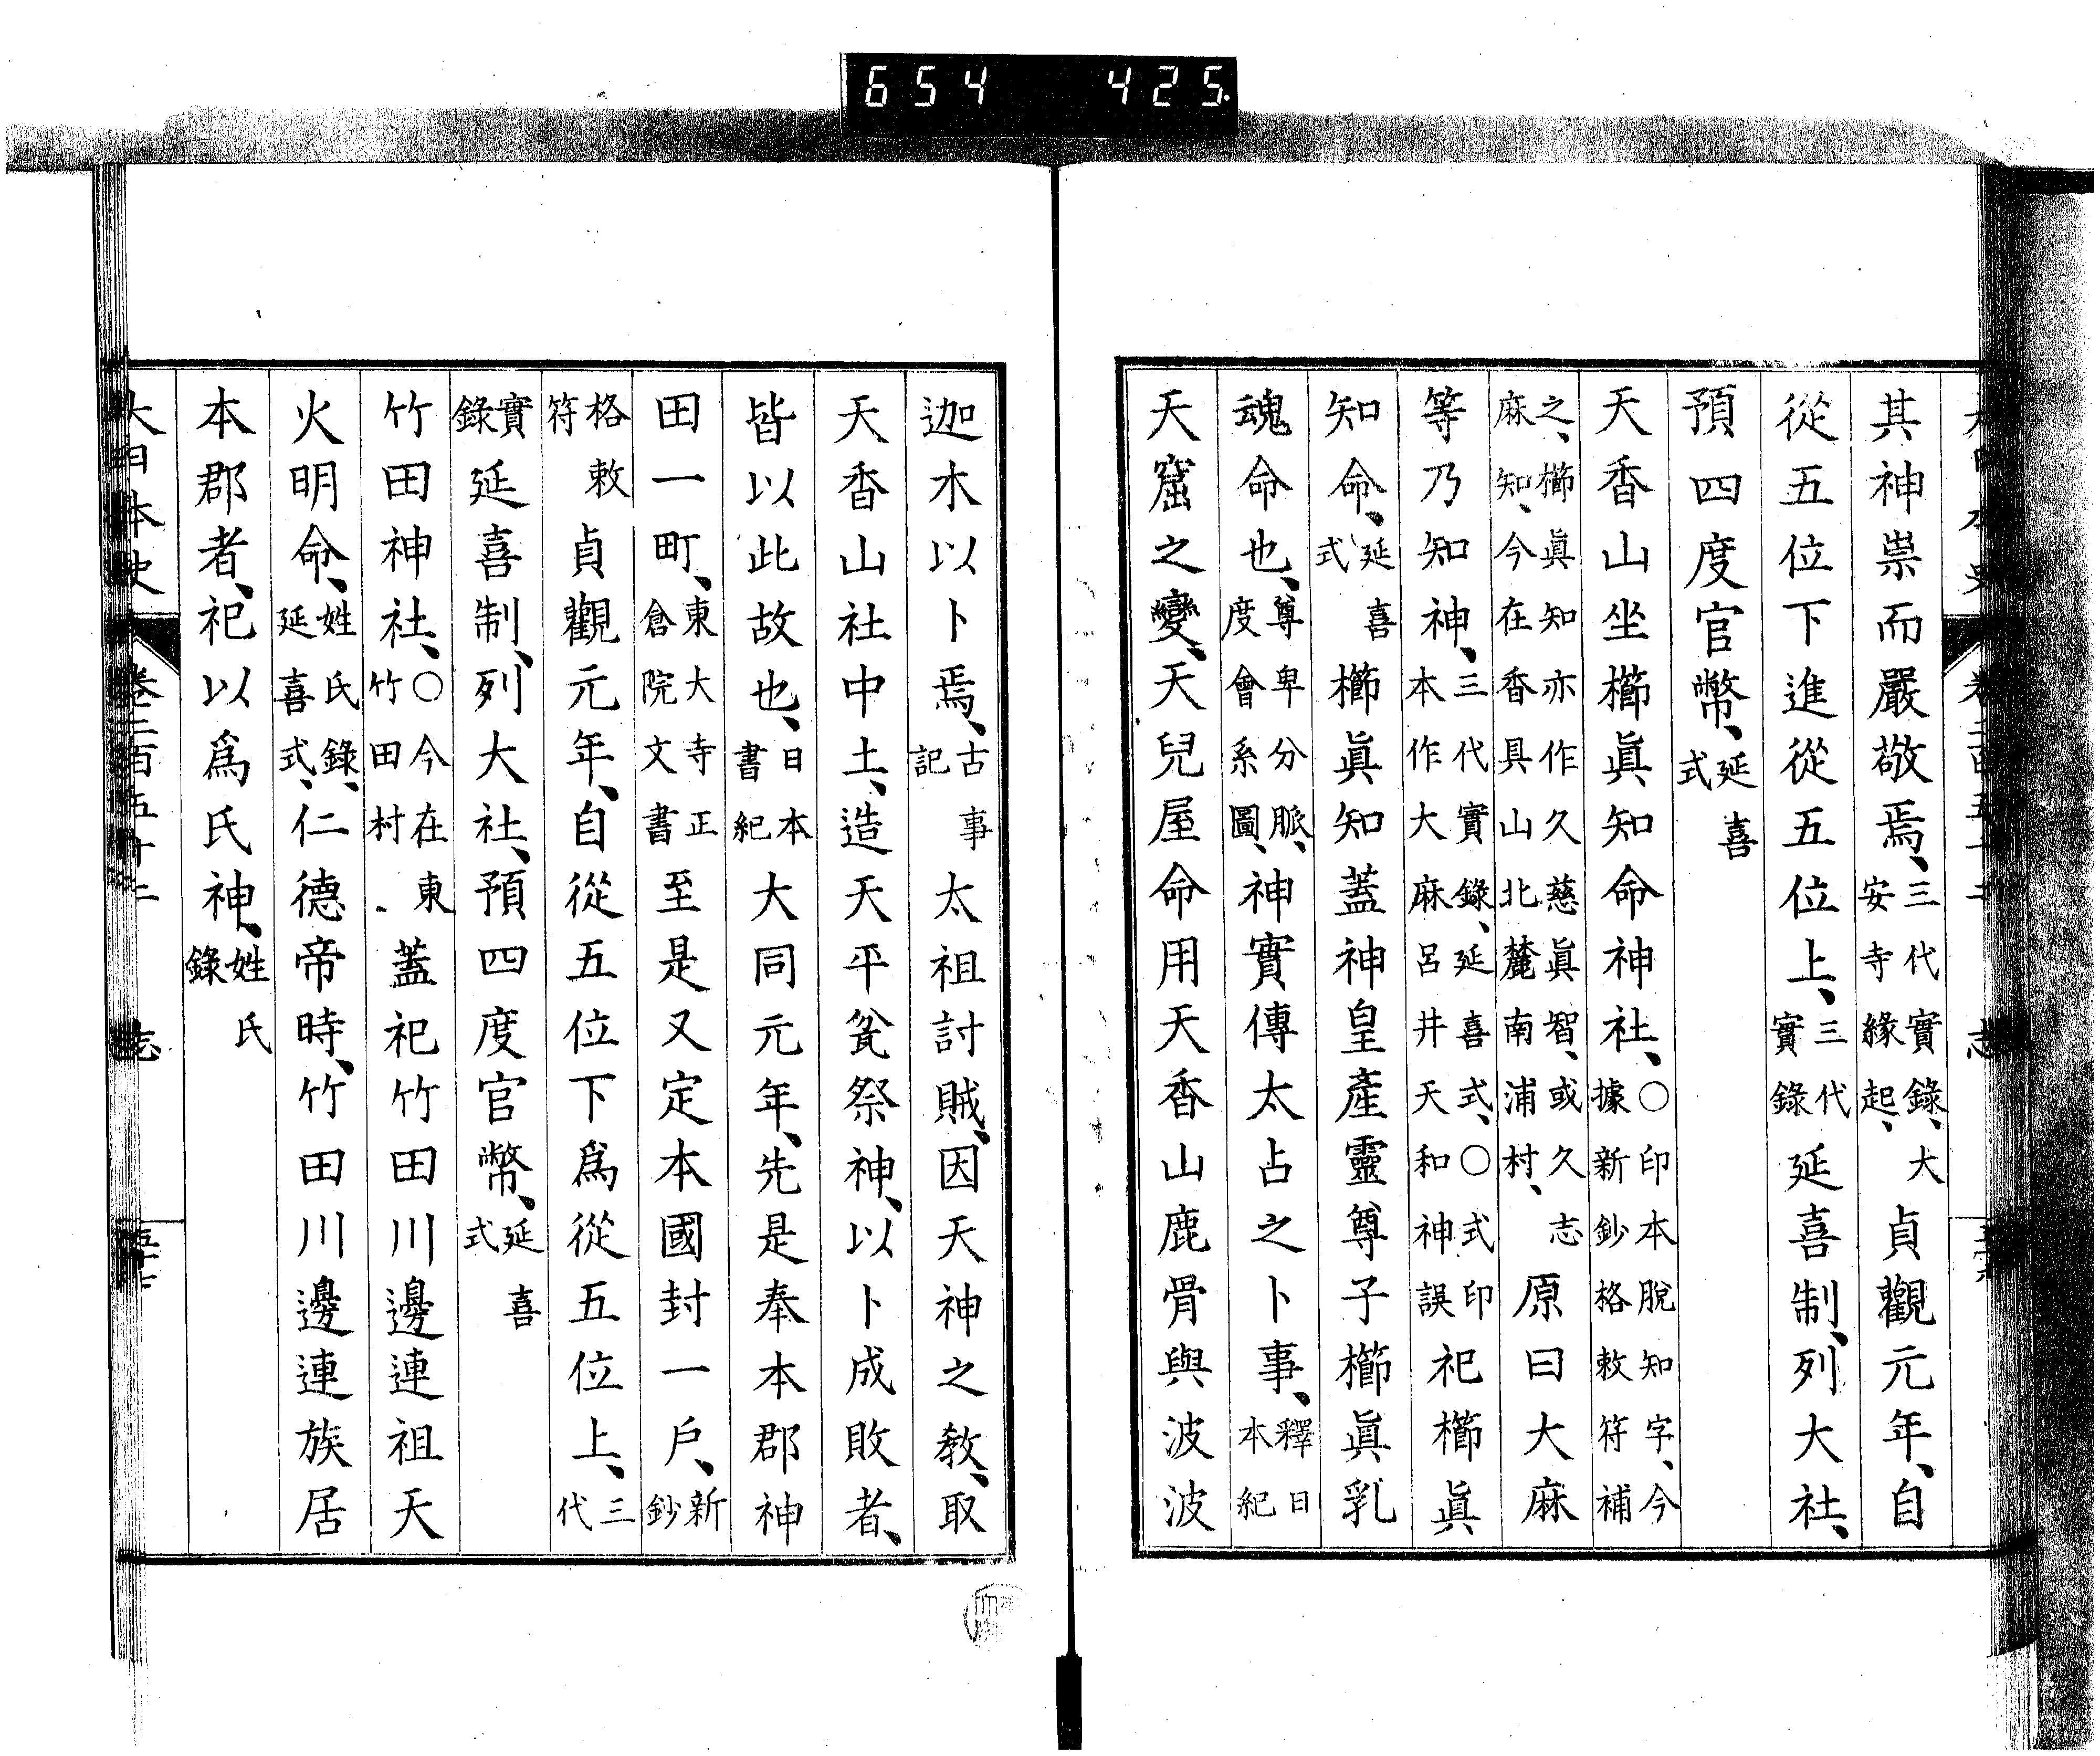 其神祟而嚴敬焉、三代實錄、大安寺緣起、貞觀元年、自
從五位下進從五位上、三代實錄延喜制、列大社、
預四度官幣、延喜式
天香山坐櫛眞知命神社、○印本脫知字、今據新鈔格敕符補
之、櫛眞知亦作久慈眞智、或久志麻知、今在香具山北麓南浦村、原曰大麻
等乃知神、三代實錄、延喜式、○式印本作大麻呂井天和神誤祀櫛眞
知命、延喜式櫛眞知蓋神皇產靈尊子櫛眞乳
魂命也、尊卑分脈、度會系圖、神實傳太占之卜事、釋日本紀
天窟之變、天兒屋命用天香山鹿骨與波波
迦木以卜焉、古事記太祖討賊、因天神之敎、取
天香山社中土、造天平瓫祭神、以卜成敗者、
皆以此故也、日本書紀大同元年、先是奉本郡神
田一町、東大寺正倉院文書至是又定本國封一戶、新鈔
格敕符貞觀元年、自從五位下爲從五位上、三代
實錄延喜制、列大社、預四度官幣、延喜式
竹田神社、○今在東竹田村蓋祀竹田川邊連祖天
火明命、姓氏錄、延喜式、仁德帝時、竹田川邊連族居
本郡者、祀以爲氏神、姓氏錄
大日本史 卷二百五十二 志
654 425